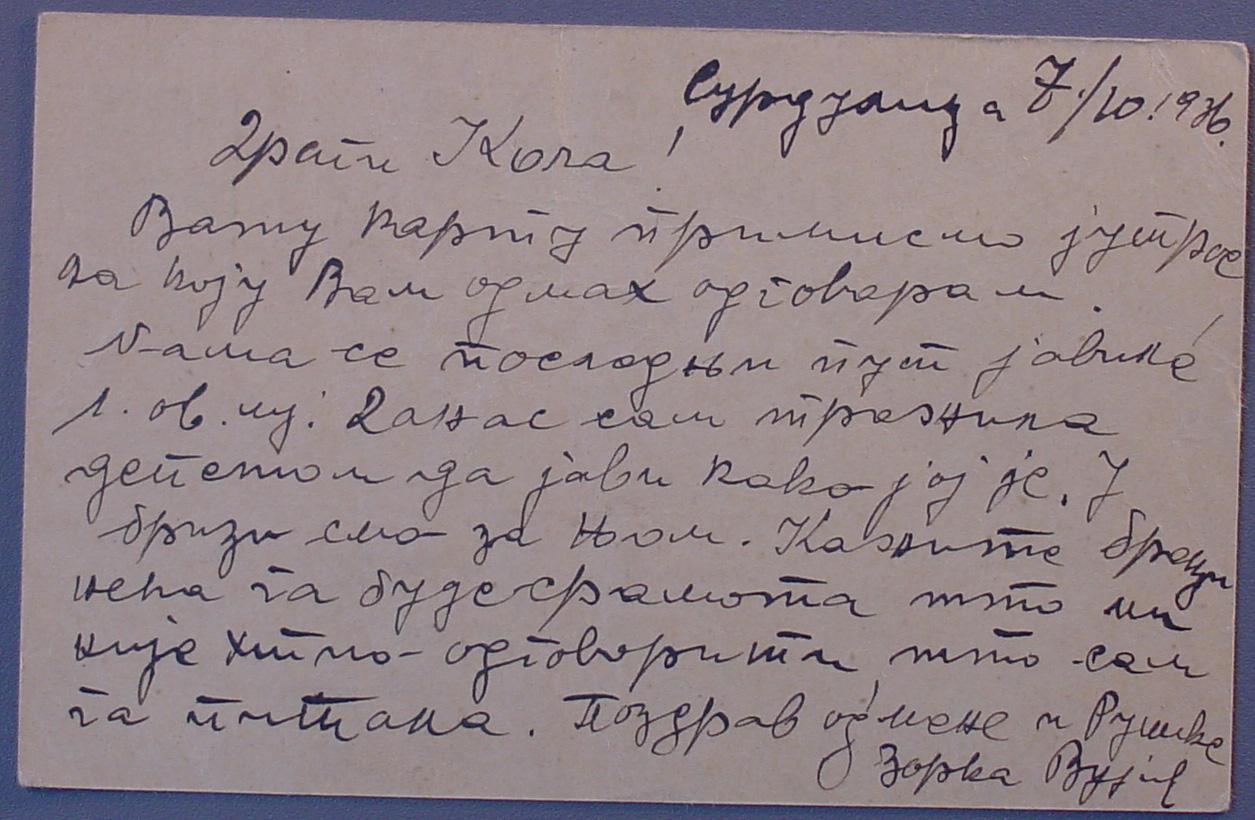 Сурдулица 7/10. 1936.
Драги Кола!
Вашу карту примисмо јутрос
на коју Вам одмах одговарам.
Мама се последњи пут јавила
1. ов. м. Данас сам тражила
депешом да јави како јој је. У
бризи смо за њом. Кажите браци
нека га буде срамота што ми
није хтио одговорити што сам
га питала. Поздрав од мене и Рушке
Зорка Вујић